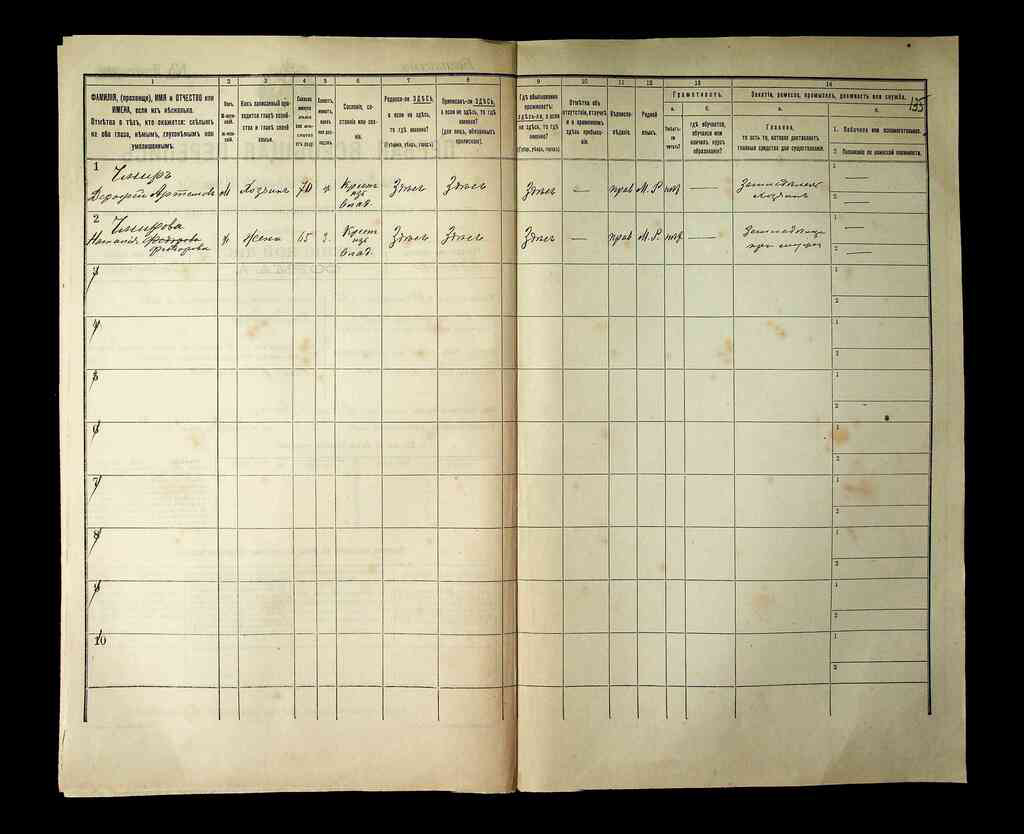 135
1 2 3 4 5 6 7 8 9 10 11 12 13 14
ФАМИЛІЯ, (прозвище), ИМЯ и ОТЧЕСТВО или
ИМЕНА, если ихъ нѣсколько.
Отмѣтка о тѣхъ, кто окажется: слѣпымъ
на оба глаза, нѣмымъ, глухонѣмымъ или
умалишеннымъ.
Полъ.
М-муж-
ской.
Ж-жен-
скій.
Какъ записанный при-
ходится главѣ хозяй-
ства и главѣ своей
семьи.
Сословіе, со-
стояніе или зва-
ніе.
Родился-ли ЗДѢСЬ,
а если не здѣсь,
то гдѣ именно?
(Губернія, уѣздъ, городъ).
Приписанъ-ли ЗДѢСЬ,
а если не здѣсь, то гдѣ
именно?
(Для лицъ, обязанныхъ
припискою).
Гдѣ обыкновенно
проживаетъ:
ЗДѢСЬ-ЛИ, а если
не здѣсь, то гдѣ
именно?
(Губер., уѣздъ, городъ).
Отмѣтка объ
отсутствіи, отлучкѣ
и о временномъ
здѣсь пребыва-
ніи.
Вѣроиспо-
вѣданіе.
Родной
языкъ.
Грамотность.
а.
Умѣетъ-
ли
читать?
б.
гдѣ обучается,
обучался или
кончилъ курсъ
образованія?
Занятіе, ремесло, промыселъ, должность или служба.
а.
Главное,
то есть то, которое доставляетъ
главныя средства для существованія.
б.
1. Побочное или вспомогательное.
2. Положеніе по воинской повинности.
1
Чмиръ
Дорофей Артемовъ М Хозяинъ 70 ж Крест изъ влад. Здѣсь Здѣсь Здѣсь — прав М.Р. нѣт — Земледѣлецъ хозяинъ
1 —
2 —
2
Чмирова
Наталія Федорова ж Жена 65 З. Крест изъ влад. Здѣсь Здѣсь Здѣсь — прав М.Р. нѣт —
1 —
2 —
3
1
2
4
1
2
5
1
2
6
1
2
7
1
2
8
1
2
9
1
2
10
1
2